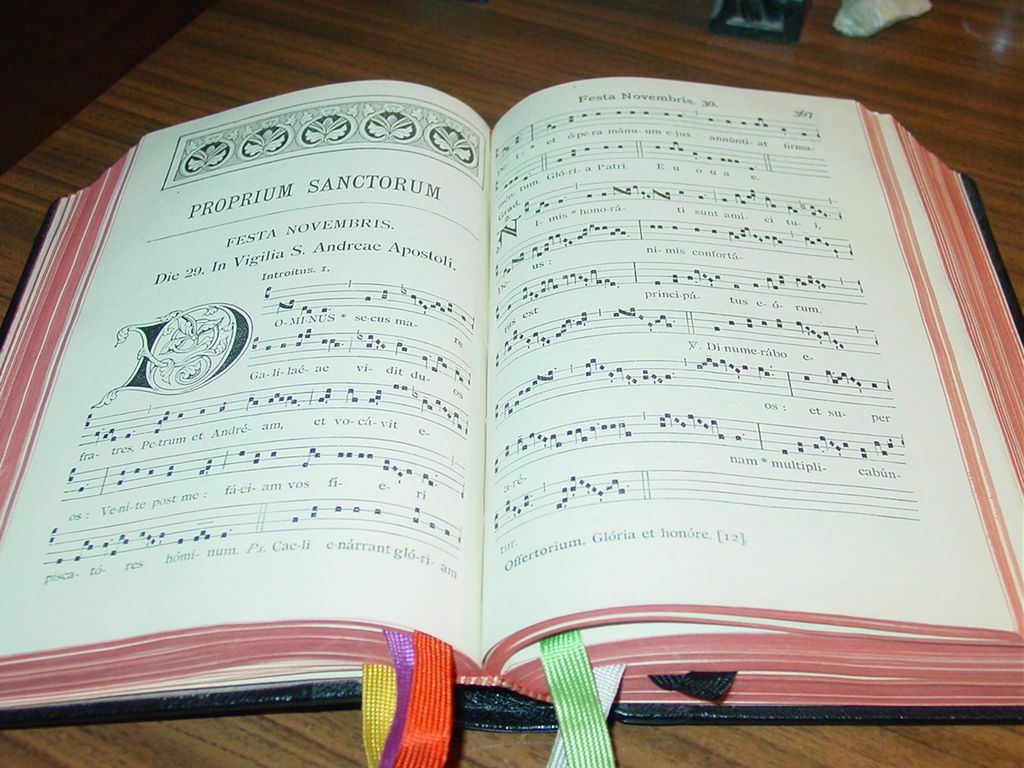 PROPRIUM SANCTORUM
FESTA NOVEMBRIS.
Die 29. In Vigilia S. Andreae Apostoli.
Introitus. 1.
DO-MINUS * se-cus ma- re
Ga-li-laé- ae vi- dit du- os
fra- tres, Pe-trum et André- am, et vo-cá-vit e-
os : Ve-ni-te post me : fá-ci- am vos fí- e- ri
pisca- tó- res hómi- num. Ps. Cae-li e-nárrant gló-ri- am
Festa Novembris. 30. 367
De- i : et ópe-ra mánu- um e-jus annúnti- at firma-
mén- tum. Gló-ri- a Patri. E u o u a e.
Grad.
NI-mis * hono-rá- ti sunt amí- ci tu- i,
De- us : ni-mis confortá-
tus est princi-pá- tus e- ó- rum.
℣. Di-nume-rábo e-
os : et su- per
a-ré- nam * multipli- cabún-
tur.
Offertorium. Glória et honóre. [12].